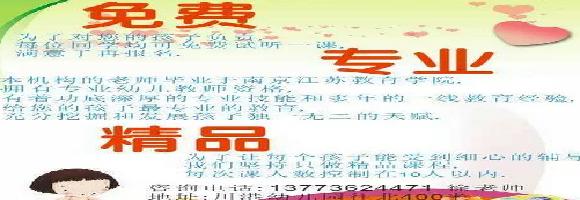 免费
为了对您的孩子负责,
每位同学均可免费试听一课,
满意了再报名.
专业
本机构的老师毕业于南京江苏教育学院,
拥有专业幼儿教师资格,
有着功底深厚的专业技能和多年的一线教育经验,
给您的孩子最专业的教育,
充分挖掘和发展孩子独一无二的天赋.
精品
为了让每个孩子能受到细心的辅导
我们坚持只做精品课程,
每次课人数控制在10人以内.
咨询电话:13773624471 徐老师
地址:川港幼儿园往北400米